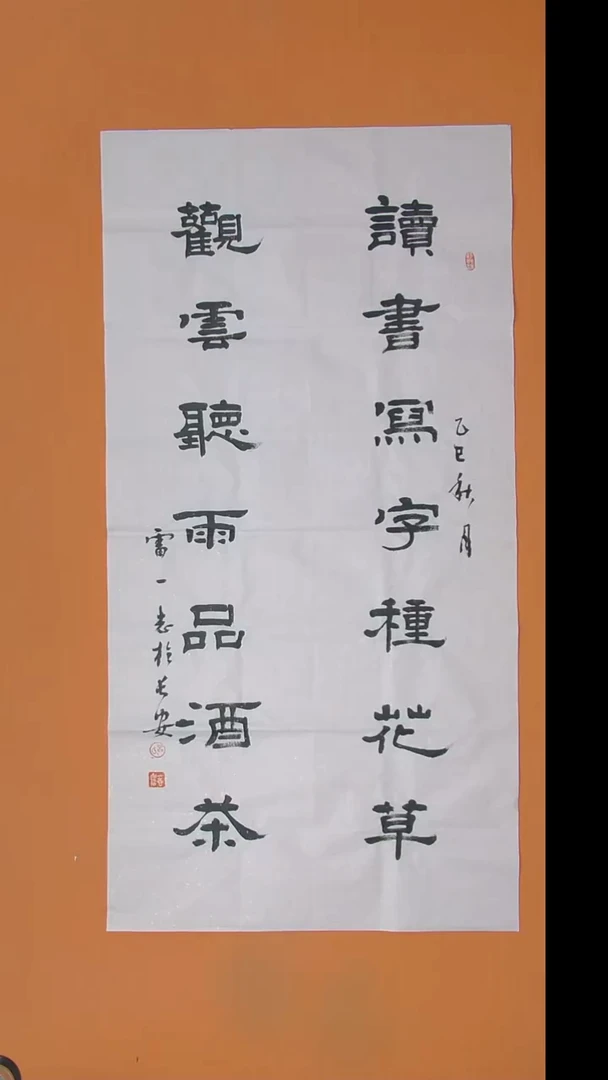 讀書寫字種花草
乙巳秋月
觀雲聽雨品酒茶
雷一志於長安